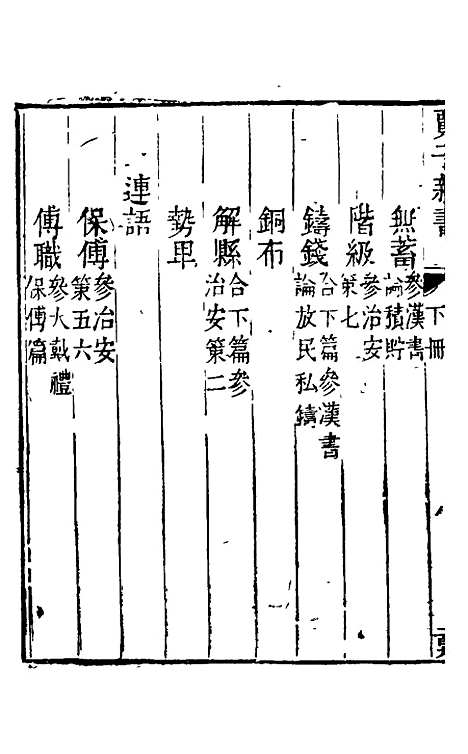 賈子新書 下冊
無蓄 參漢書論積貯
階級 參治安第七
鑄錢 合下篇參漢書論放民私鑄
銅布
解縣 合下篇參治安第二
勢卑
連語
保傅 參治安第五六
傅職 參大戴禮保傅篇